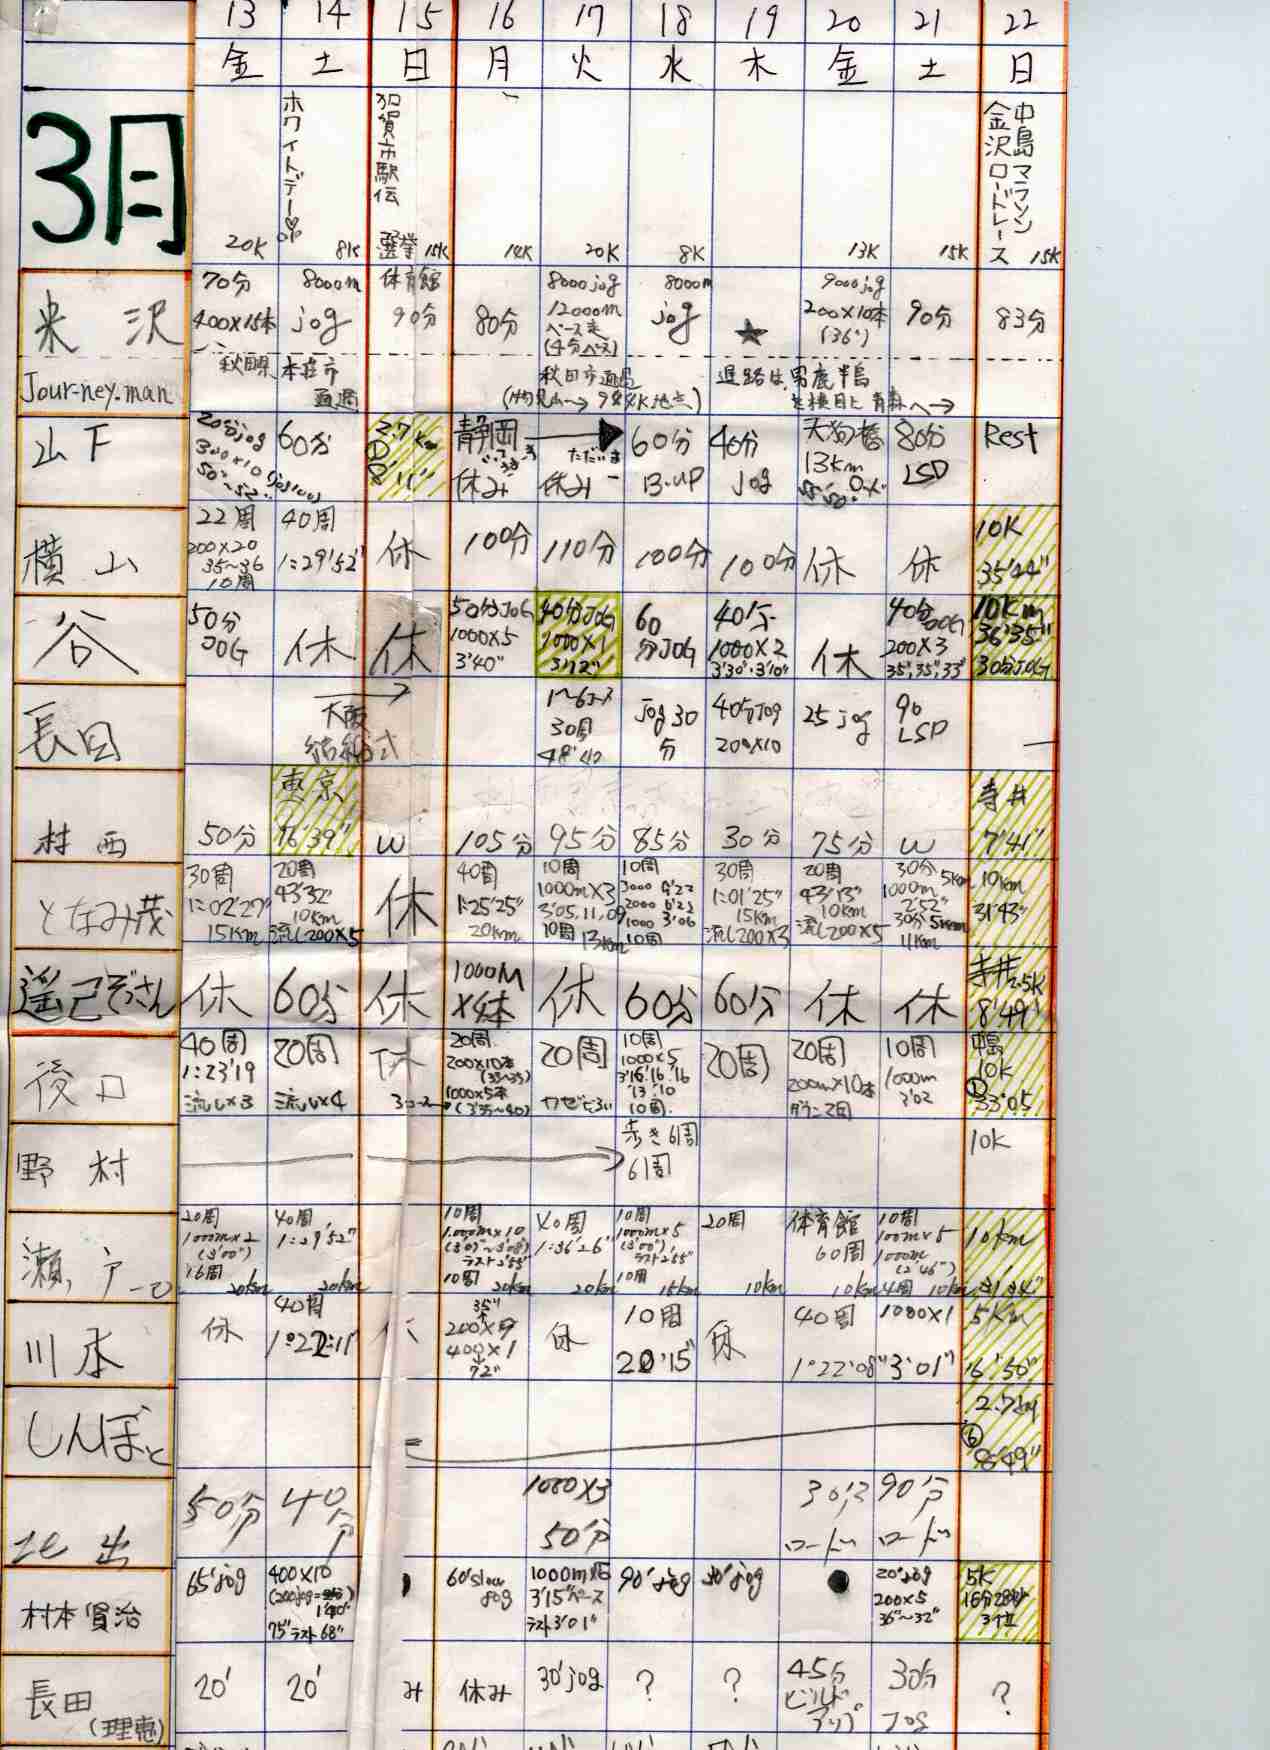 13 14 15 16 17 18 19 20 21 22
金 土 日 月 火 水 木 金 土 日
3月
ホワイトデー♡
加賀市駅伝
選挙
中島マラソン
金沢ロードレース
20K 8K 15K 14K 20K 8K 13K 15K 15K
米沢
70分
400×15本
8000m
jog
体育館
90分
80分
8000jog
12000m
ペース走
(4分ペース)
8000m
jog
★
9000jog
200×10本
(36")
90分
83分
Jour-ney.man
秋田県 本荘市
通過
秋田市通過
進路は、男鹿半島
を横目に青森へ→
山下
20分jog
300×10
50"~52"
60分
2.7km
静岡
休み
ただいま
休み
60分
B.UP
40分
jog
天狗橋
13km
80分
LSD
Rest
横山
22周
200×20
35~36
10周
40周
1:29'52"
休
100分
110分
100分
100分
休
休
10K
35'44"
谷
50分
JOG
休
休
50分JOG
1000×5
3'40"
40分JOG
1000×1
60
分JOG
40分
1000×2
3'30"・3'10"
休
40分JOG
200×3
35",35",33"
10Km
36'35"
30分JOG
長田
大阪
結婚式
30周
jog 30
分
40分jog
200×10
25 jog
90
LSD
村西
50分
東京
W
105分
95分
85分
30分
75分
W
寺井
7'41"
となみ茂
30周
1:02'27"
15Km
20周
43'32"
10km
流し200×5
休
40周
1:25'25"
20km
10周
1000m×3
3'05,11,09
10周 13km
10周
3000 9'22
2000 6'23
1000 3'06
10周
30周
1:01'25"
15km
流し200×3
20周
43'13"
10km
流し200×5
30分 5km
1000m
2'52"
30分 5km
11km
10km
31'43"
遥己ぞっさん
休
60分
休
1000M
×4本
休
60分
60分
休
休
寺井2.5K
8'49"
後口
40周
1:23'19
流し×3
20周
流し×4
休
20周
200×10本
(33~35)
1000×5本
(3'35~40)
20周
カゼぎみ
10周
1000×5
3'16.16.16
'13.'10
10周.
20周
20周
200m×10本
10周
1000m
3'02
中島
10K
①
33'05
野村
歩き61周
61周
10K
瀬戸口
20周
1000m×2
(3'00")
16周
20km
40周
1:29'52"
20km
10周
1000m×10
(3'07"~3'08")
ラスト2'55"
10周 20km
40周
1:36'26"
20km
10周
1000m×5
(3'00")
ラスト2'55"
10周 15km
20周
10km
体育館
60周
10km
10周
100m×5
1000m
(2'46")
4周 10km
10km
川本
休
40周
35"
200×9
400×1
72"
休
10周
20'15"
休
40周
1°22'08"
1000×1
3'01"
5Km
しんぼと
2.7km
⑥
北出
50分
40分
1000×3
50分
30分
ロード
90分
ロード
村本賢治
65'jog
400×10
75"ラスト68"
60'slow
jog
3'15"ペース
ラスト3'01"
90'jog
30'jog
●
20'jog
200×5
36"~32"
5K
3位
長田
(理恵)
20'
20'
み
休み
30'jog
?
?
45分
ビルド
アップ
30分
JOG
?